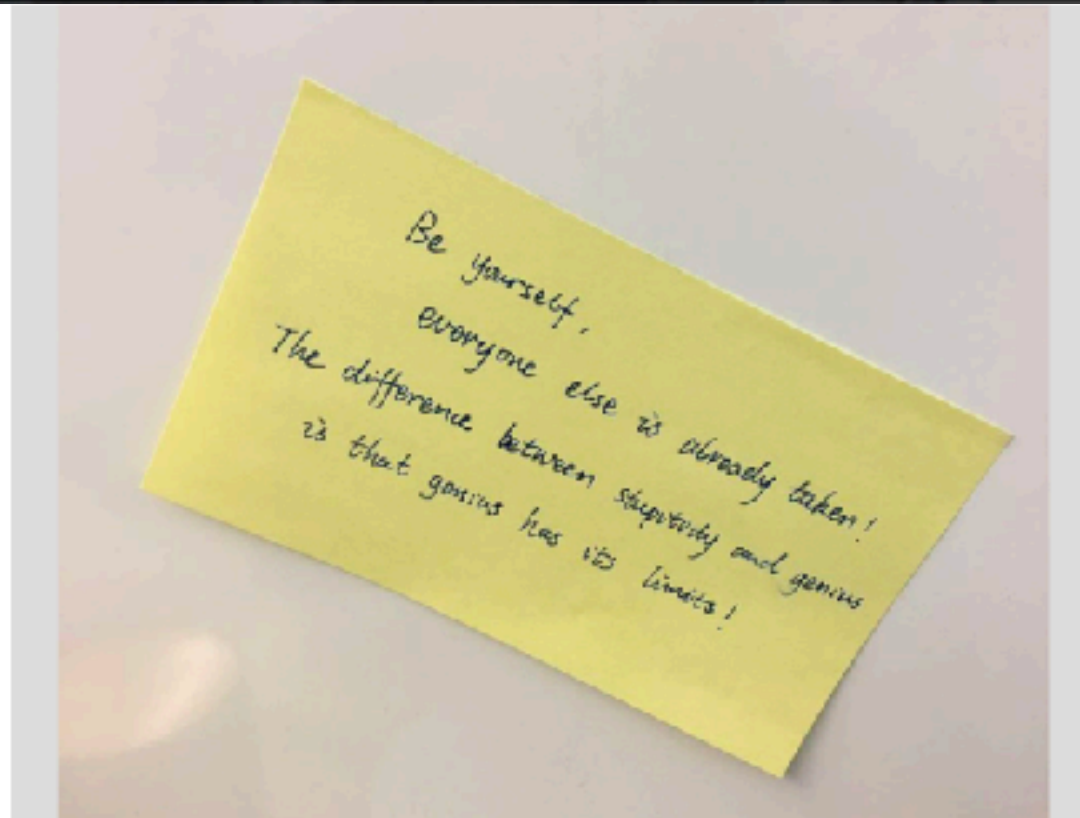 Be yourself,
everyone else is already taken!
The difference between stupidity and genius
is that genius has its limits!